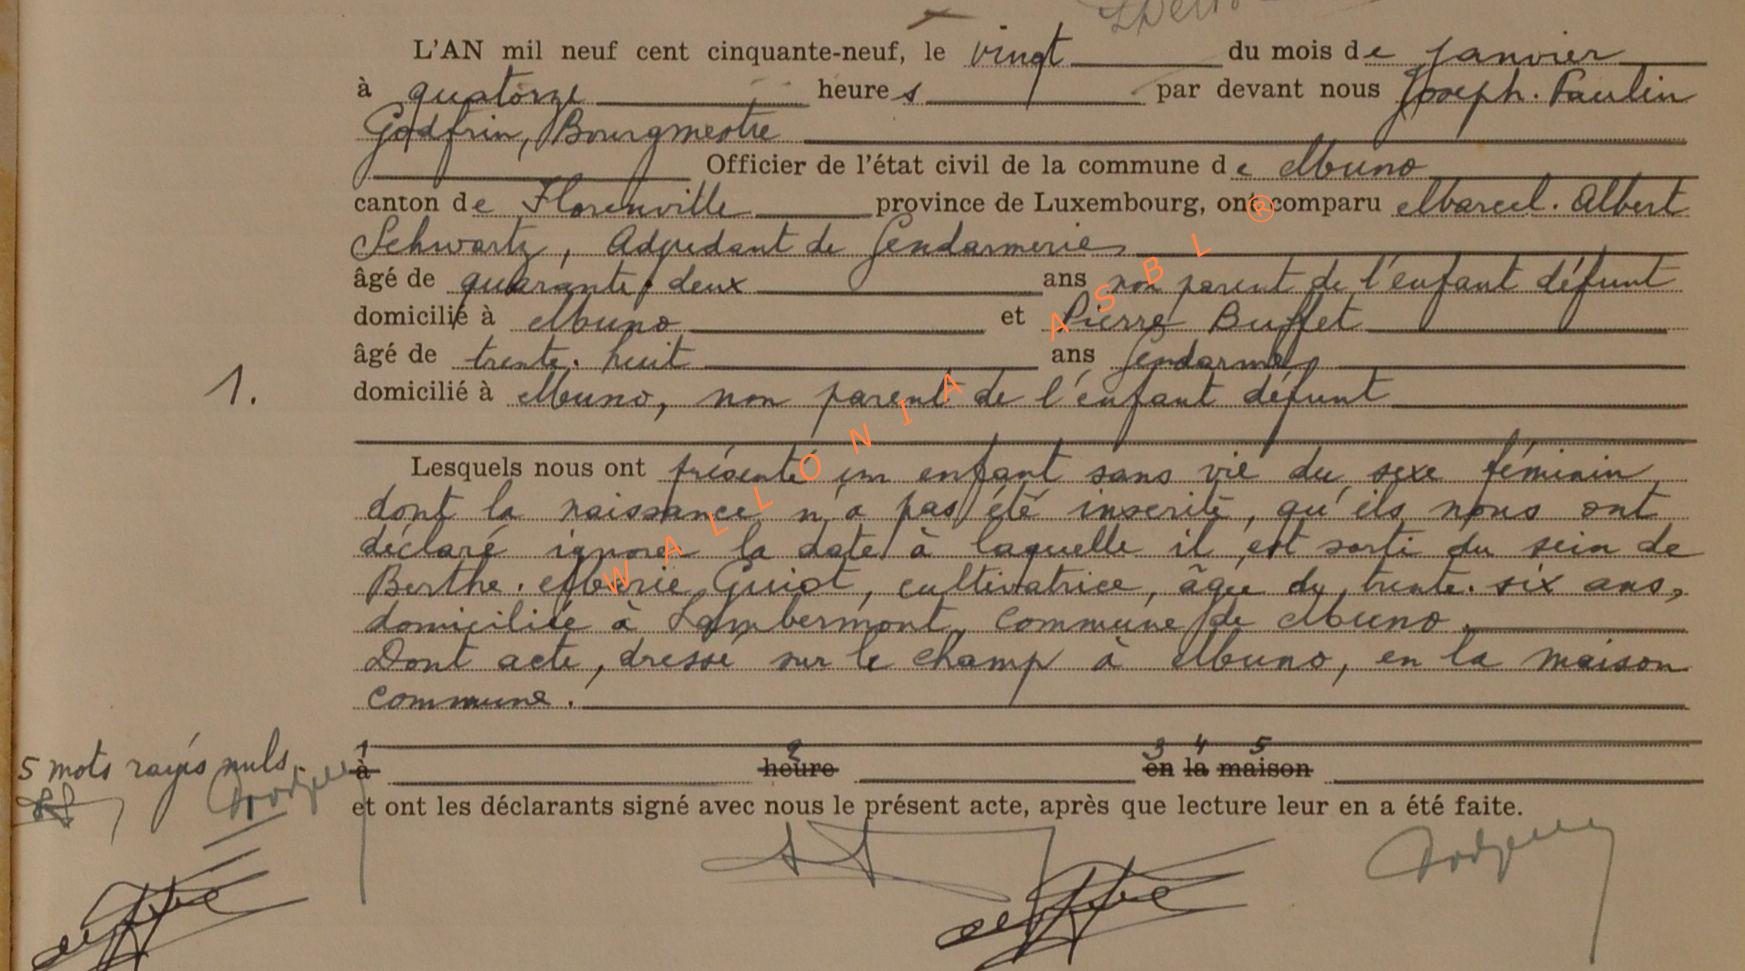 L'AN mil neuf cent cinquante-neuf, le vingt du mois de janvier
à quatorze heures par devant nous Joseph. Paulin
Godfrin, Bourgmestre
Officier de l'état civil de la commune de Muno
canton de Florenville province de Luxembourg, ont comparu Marcel. Albert
Schwartz, Adjudant de Gendarmerie
âgé de quarante. deux ans non parent de l'enfant défunt
domicilié à Muno et Pierre Buffet
âgé de trente. huit ans Gendarme
1. domicilié à Muno, non parent de l'enfant défunt
Lesquels nous ont présenté un enfant sans vie du sexe féminin
dont la naissance n'a pas été inscrite, qu'ils nous ont
déclaré ignorer la date à laquelle il est sorti du sein de
Berthe. Marie Guiot, cultivatrice, âgée de trente. six ans,
domiciliée à Lambermont, commune de Muno.
Dont acte, dressé sur le champ à Muno, en la maison
commune.
1 2 3 4 5
5 mots rayés nuls.
à heure en la maison
et ont les déclarants signé avec nous le présent acte, après que lecture leur en a été faite.
WALLONIA ASBL ®